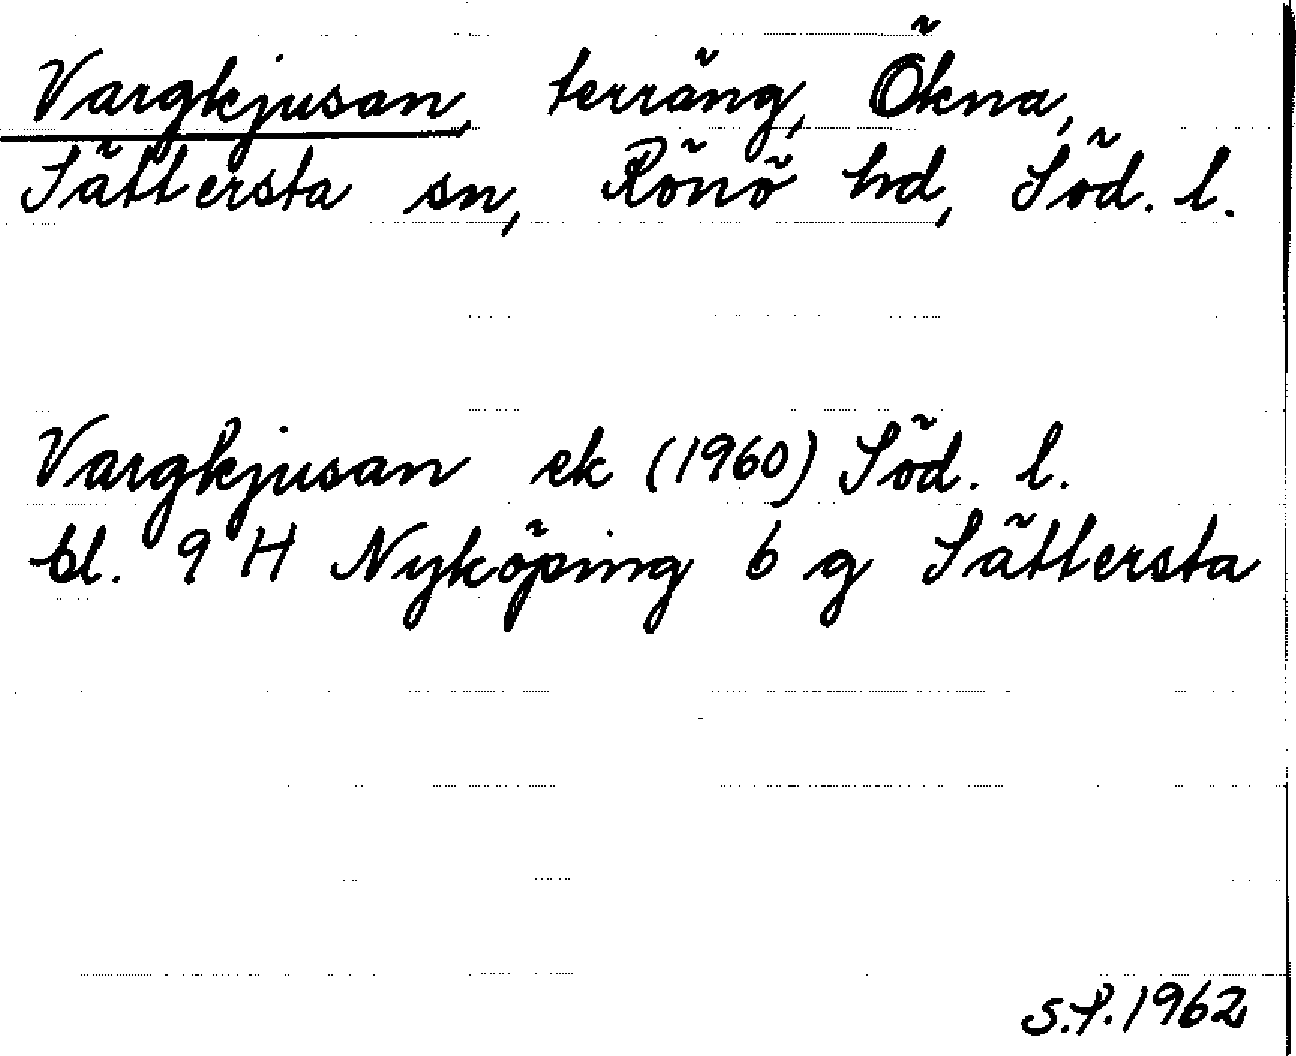 Vargkjusan, terräng, Ökna,
Sättersta sn, Rönö hd, Söd. l.
Vargkjusan ek (1960) Söd. l.
bl. 9 H Nyköping 6 g Sättersta
S.P. 1962